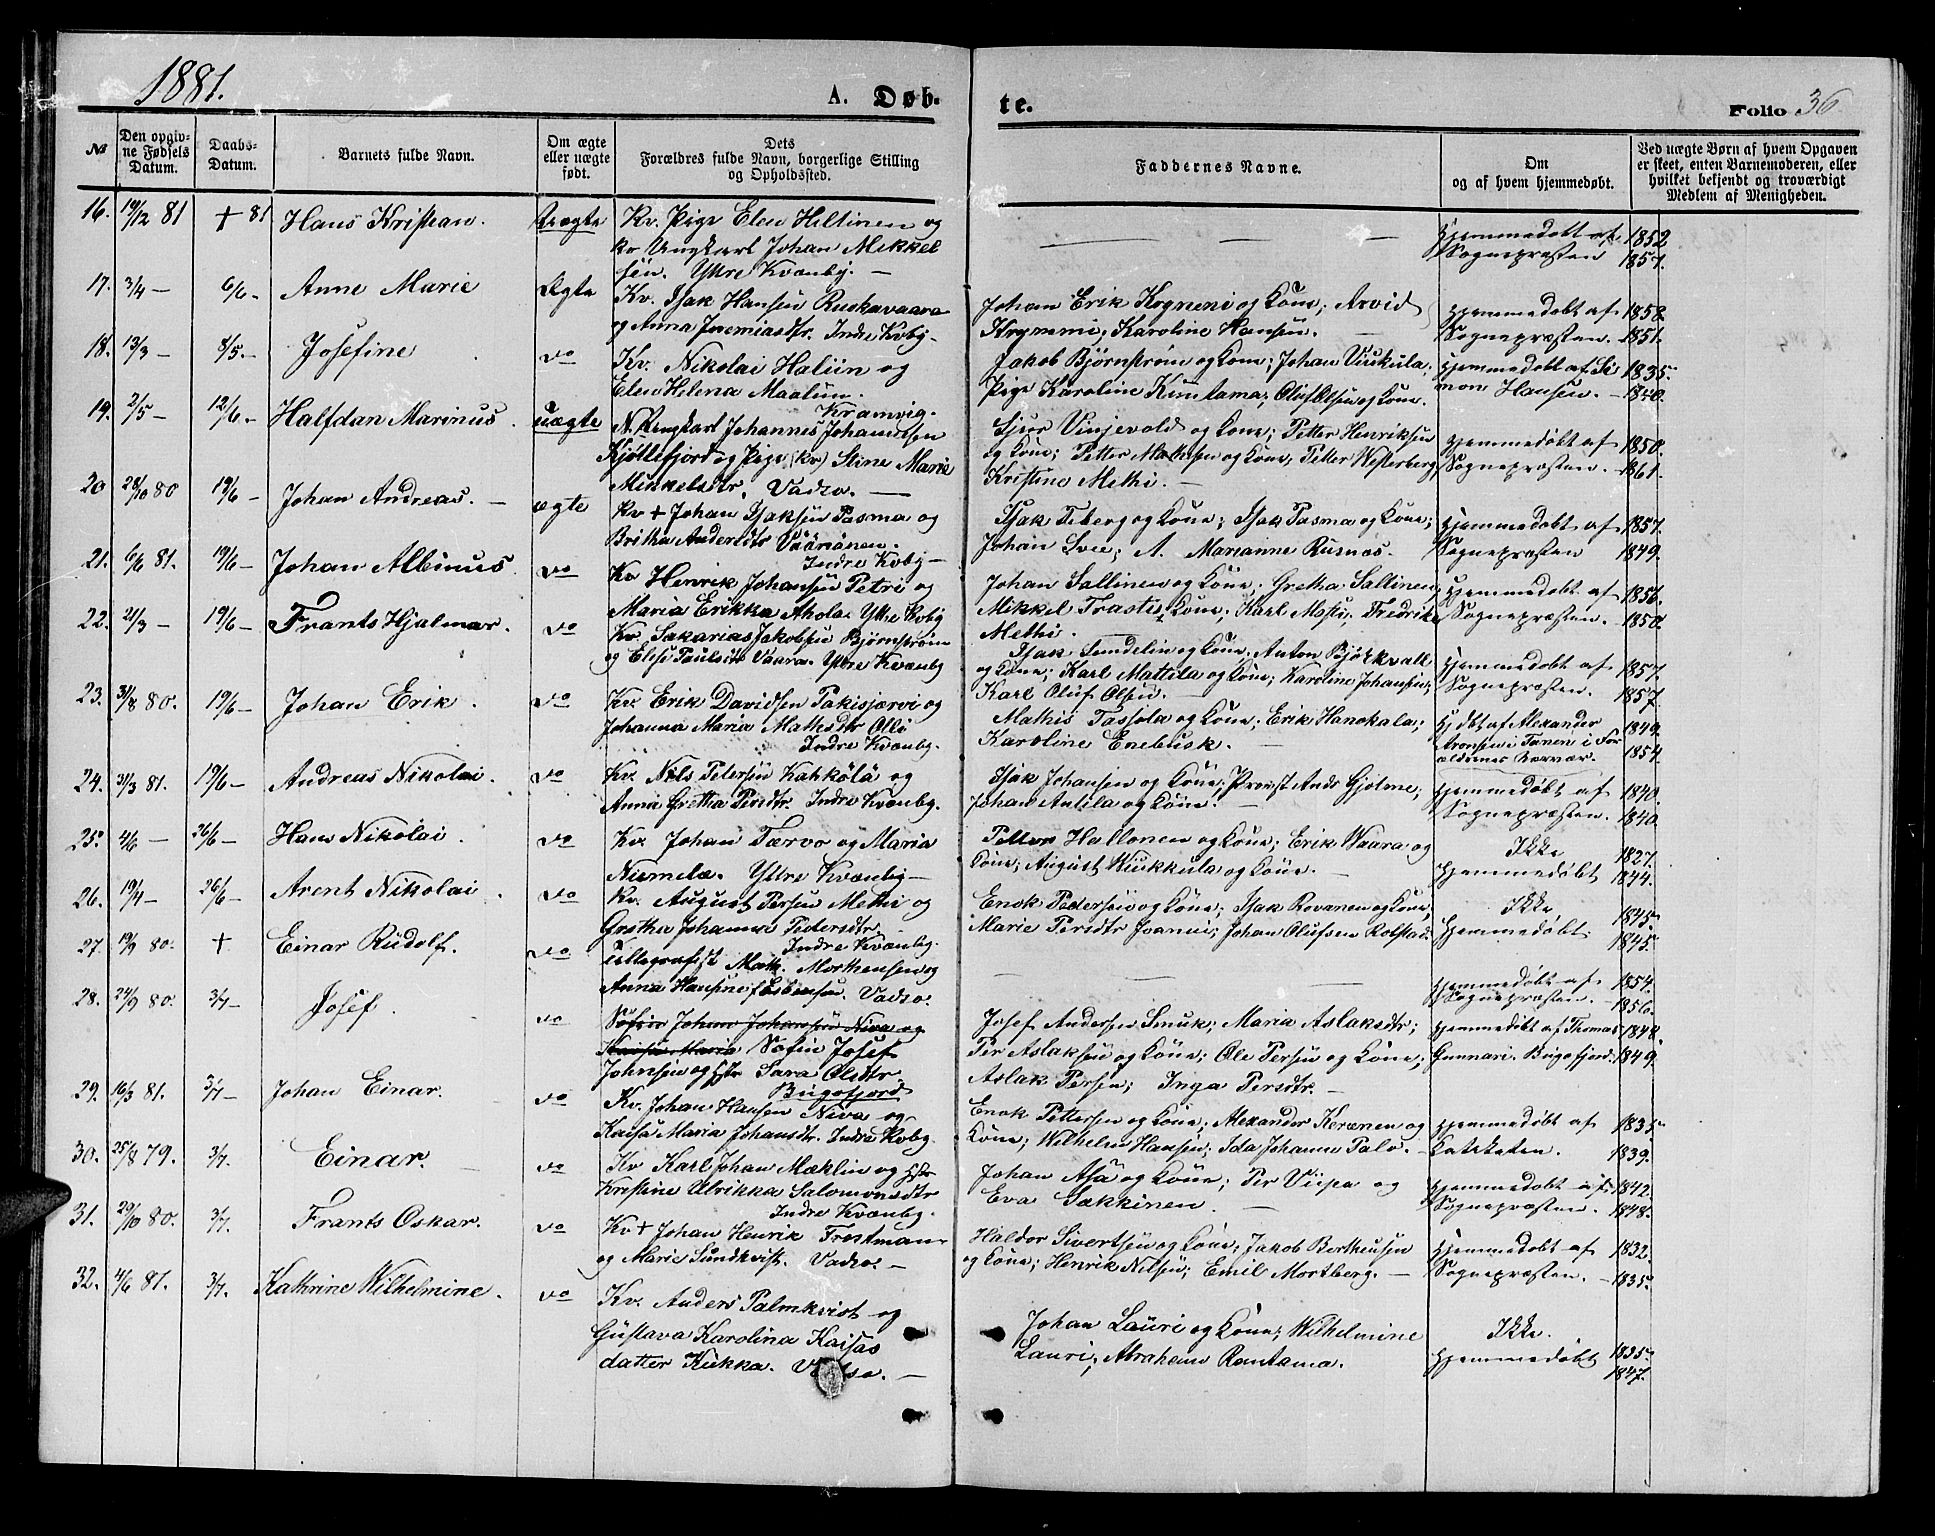 1881.
A. Døb-
te.
Folio 36
No
Den opgiv-
ne Fødsels
Datum.
Daabs-
Datum.
Barnets fulde Navn.
Om ægte
eller uægte
født.
Dets
Forældres fulde Navn, borgerlige Stilling
og Opholdssted.
Faddernes Navne.
Om
og af hvem hjemmedøbt.
Ved uægte Børn af hvem Opgaven
er skeet, enten Barnemoderen, eller
hvilket bekjendt og troværdigt
Medlem af Menigheden.
16. 19/12 81 + 81 Hans Kristian. Uægte
Kv. Pige Elen Hiltinen og
kv Ungkarl Johan Mikkel
sen. Ytre Kvænby. —
Hjemmedøbt af
Sognepræsten
1852
1857.
17. 3/4 — 6/6 - Anne Marie Ægte
Kv. Isak Hansen Ruskavaara
og Anna Jeremiasdtr. Indre Kvby-
Johan Erik Krgneni og Kone; Arvid
Karoline Hansen. -
hjemmedøbt af
Sognepræsten.
1858.
1851.
18. 13/3 — 8/5. - Josefine do
Kv. Nikolai Haliin og
Elen Helena Maalun.
Jakob Bjørnstrøm og Kone; Johan Viukula;
Pige Karoline Kuntama; Oluf Olsen og Kone.
hjemmedøbt af Si
mon Hansen. -
1835.
1840.
19. 2/5 — 12/6. - Halfdan Marinus. uægte
Kramvig.
N. Ungkarl Johannes Johannesen
Kjøllefjord og Pige (kv) Stine Marie
Mikkelsdtr. Vadsø. —
Sjur Vinjevold og Kone; Petter Henriksen
og Kone; Petter Mathisen og Kone; Petter Westerberg;
Kristine Methi. —
hjemmedøbt af
Sognepræsten. -
1850.
1861.
20 28/10 80 19/6 - Johan Andreas. — ægte
Kv + Johan Isaksen Pasma og
Britha Andersdtr Vääriänen.
Indre Kvby —
Isak Feberg og Kone; Isak Pasma og Kone;
Johan Svee; A. Marianne Rusnæs.
hjemmedøbt af
Sognepræsten
1857.
1849.
21. 6/6 81. 19/6 - Johan Albinus. do
Kv Henrik Johansen Petri og
Maria Erikka Ahola. Ytre Kvby
Johan Sallinen og Kone; Gretha Sallinen;
Mikkel Frasti & Kone; Karl Fredrik
Methi.
hjemmedøbt af
Sognepræsten.
1856.
1850.
22. 21/3 — 19/6 - Frants Hjalmar. do
Kv. Sakarias Jakobsen Bjørnstrøm
og Elise Paulsdtr Vaara. Ytre Kvænby
Isak Sundelin og Kone; Anton Bjørkvall
og Kone; Karl Mattila og Kone; Karoline Johansen;
Karl Oluf Olsen. —
hjemmedøbt af
Sognepræsten.
1857.
1857.
23. 31/8 80. 19/6 - Johan Erik. do
Kv. Erik Davidsen Pakisjærvi og
Johanna Maria Mathisdtr Oli
Indre Kvænby.
Mathis Tassola og Kone; Erik Hanokala;
Karoline Enebusk. —
Hjdøbt af Alexander
Aronsen i Tanen i For
ældrenes Nærvær.
1849.
1854.
24. 31/3 81. 19/6 - Andreas Nikolai. do
Kv. Nils Petersen Kahkölä og
Anna Gretha Persdtr. Indre Kvænby.
Isak Johansen og Kone; Provst Ands Gjølme;
Johan Antila og Kone. —
hjemmedøbt af
Sognepræsten.
1840.
1840.
25. 4/6 — 26/6 - Hans Nikolai. do
Kv. Johan Tærvo og Maria
Niemelæ. Ytre Kvænby —
Petter Hallonen og Kone; Erik Waara og
Kone; August Wiukkula og Kone. —
Ikke
hjemmedøbt
1827.
1844.
26. 19/4 — 26/6 - Arent Nikolai. do
Kv. August Persen Methi og
Gretha Johanna Pedersdtr.
Indre Kvænby.
Enok Pedersen og Kone; Isak Rovanen og Kone;
Marie Persdtr Joanni; Johan Olufsen Rolstad.
Ikke
hjemmedøbt.
1845.
1845.
27. 19/9 80. + Einar Rudolf. do
Tellegrafist Math. Morthensen og
Anna Hansine f. Esbensen. Vadsø.
hjemmedøbt af
Sognepræsten.
1854.
1856.
28. 24/9 80. 3/7 - Josef. do
Søfin Johan Johansen Niva og
Kaisa Maria Søfin Josef
Johnsen og Hstr Sara Olsdtr
Bugøfjord
Josef Andersen Smuk; Maria Aslaksdtr;
Per Aslaksen og Kone; Ole Persen og Kone;
Aslak Persen; Inga Persdtr. —
hjemmedøbt af Thomas
Gunnari. Bugøfjord.
1848.
1849.
29. 16/3 81. 3/7 - Johan Einar. do
Kv. Johan Hansen Niva og
Kaisa Maria Johansdtr. Indre Kvby.
Enok Pettersen og Kone; Alexander Keränen og
Kone; Wilhelm Hansen; Ida Johanna Palo. -
hjemmedøbt af
Katiketen.
1835.
1839.
30. 25/8 79. 3/7. Einar. do
Kv Karl Johan Mæklin og Hstr
Kristine Ulrikka Salomonsdtr
Indre Kvænby.
Johan Asa og Kone; Per Viipa og
Eva Sakkinen. —
hjemmedøbt af
Sognepræsten.
1842.
1848.
31. 29/10 80. 3/7. Frants Oskar. do
Kv + Johan Henrik Frostman
og Marie Sundkvist. Vadsø. —
Haldor Sivertsen og Kone; Jakob Berthusen
og Kone; Henrik Nilsen; Emil Mortberg. —
hjemmedøbt af
Sognepræsten. -
1832.
1835.
32. 4/6 81. 3/7. Kathrine Wilhelmine. do
Kv. Anders Palmkvist og
Gustava Karolina Kaisas
datter Kukka. Vadsø. —
Johan Lauri og Kone; Wilhelmine
Lauri; Abraham Rantama.
Ikke.
hjemmedøbt
1835.
1847.